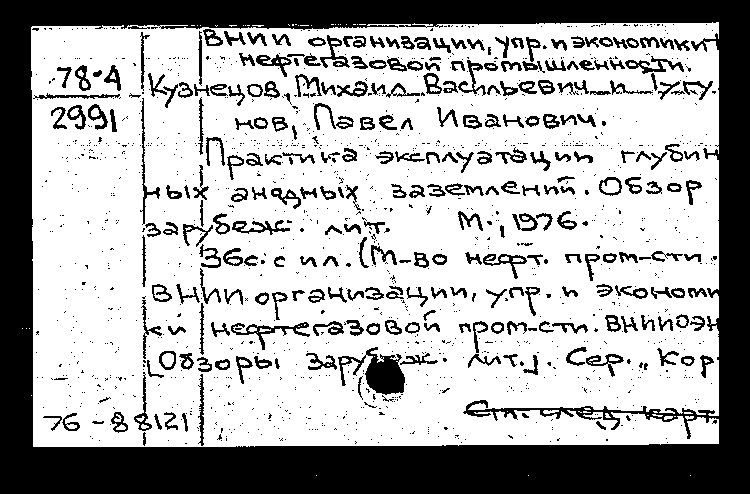 ВНИИ организации, упр. и экономики
нефтегазовой промышленности.
78-4
Кузнецов, Михаил Васильевич и Тугу
2991
нов, Павел Иванович.
Практика эксплуатации глубин
ных анодных заземлений. Обзор
зарубеж. лит. М., 1976.
36с. с ил. (М-во нефт. пром-сти.
ВНИИ организации, упр. и экономи
ки нефтегазовой пром-сти. ВНИИОЭН
[Обзоры зарубеж. лит.]. Сер. „Кор-
76-88121
См. след. карт.